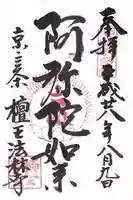 奉拝
平成廿八年八月九日
阿弥陀如来
京三条 檀王法林寺